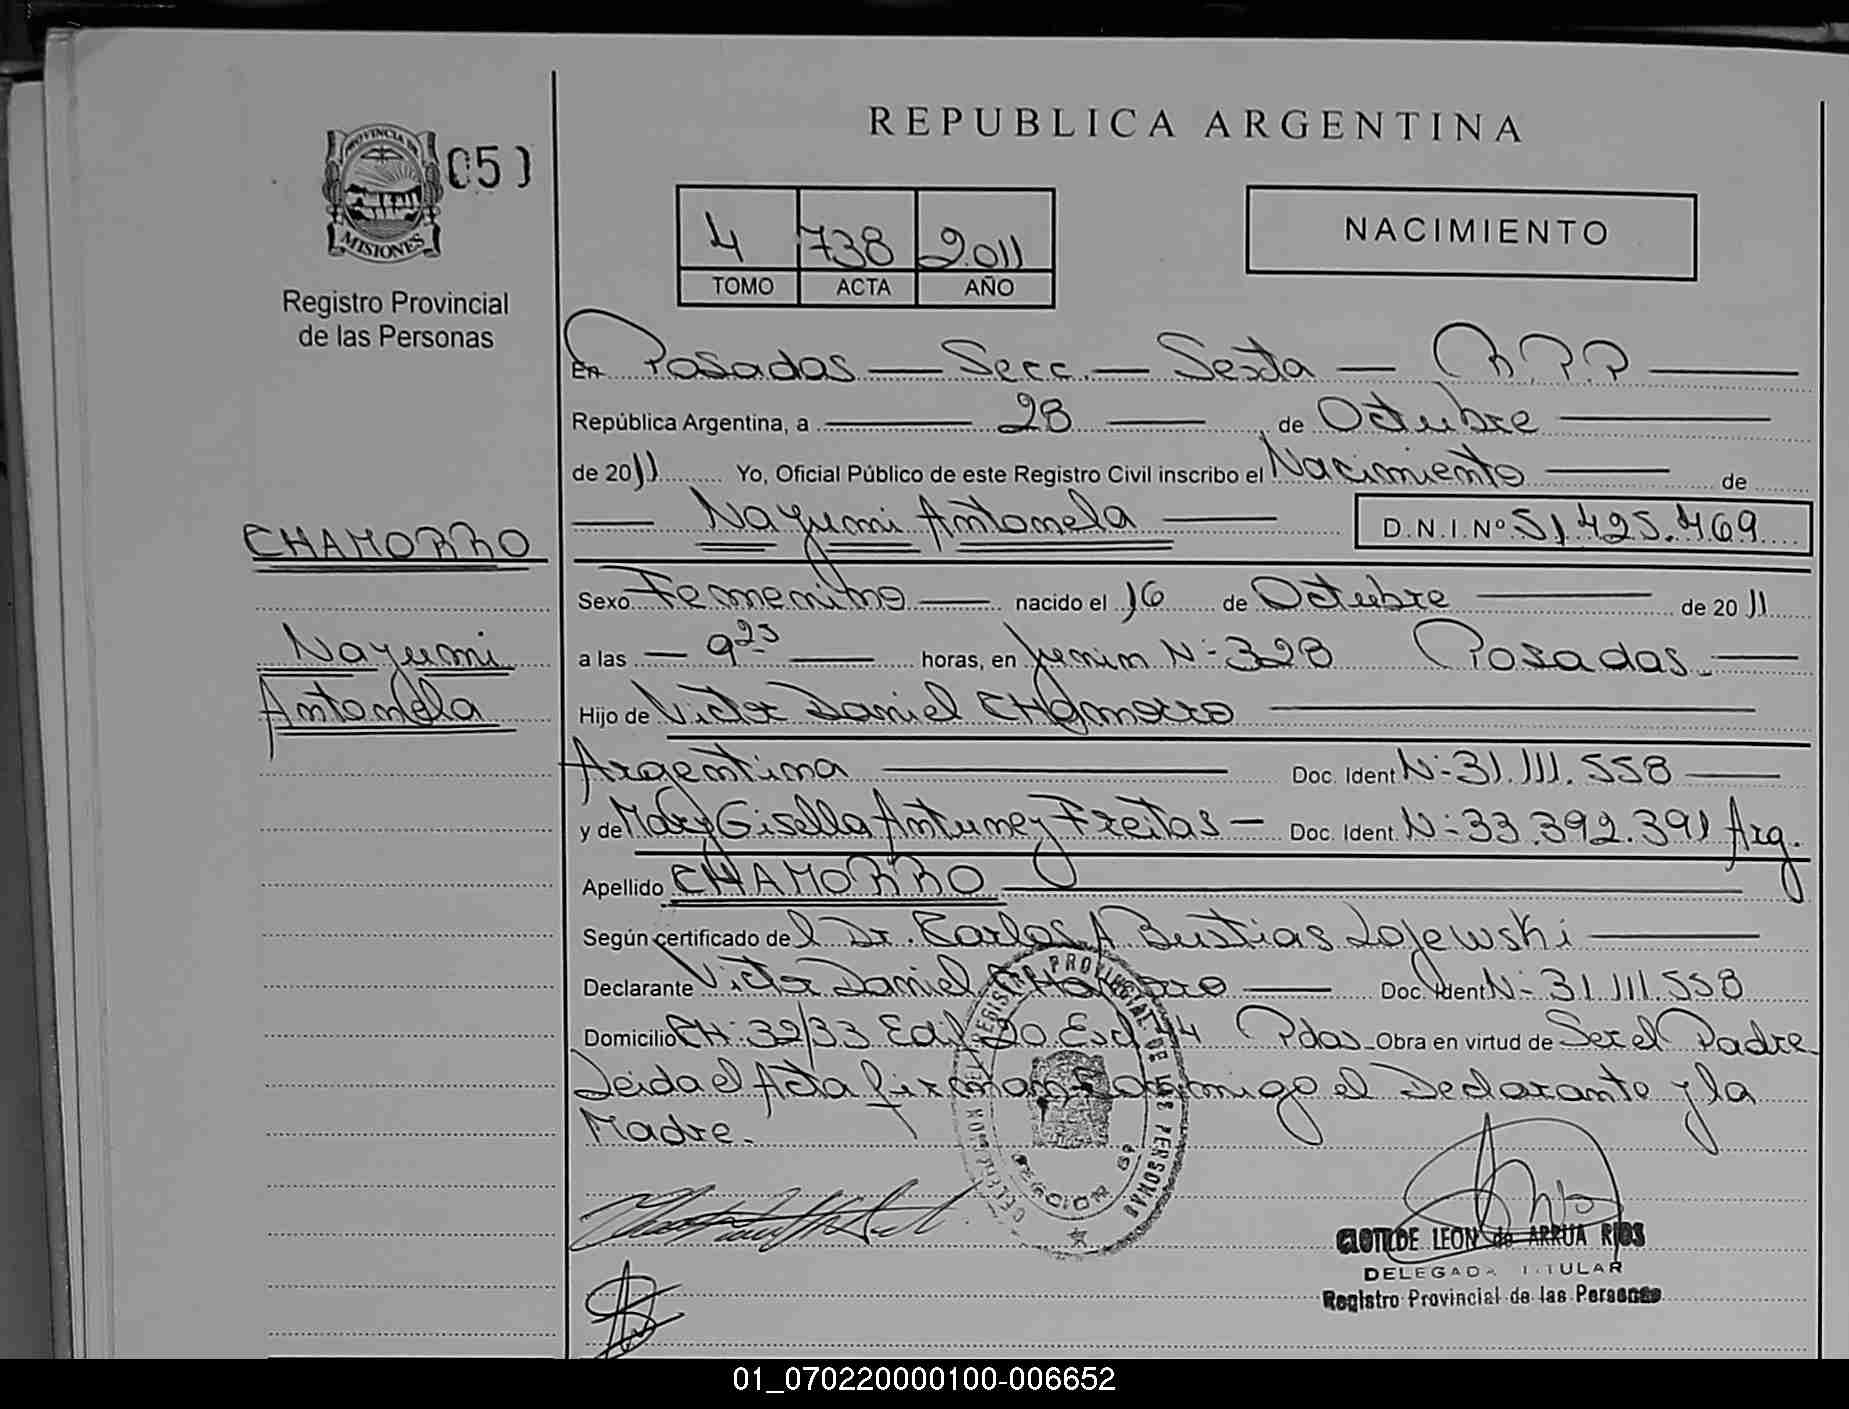 REPUBLICA ARGENTINA
PROVINCIA DE
MISIONES
Registro Provincial
de las Personas
4 738 2.011
TOMO ACTA AÑO
NACIMIENTO
En Posadas — Secc. — Sexta — R.P.P
República Argentina, a 28 de Octubre
de 2011 Yo, Oficial Público de este Registro Civil inscribo el Nacimiento de
Nayumi Antonela D.N.I.Nº 51.425.469
CHAMORRO
Nayumi
Antonela
Sexo Femenino nacido el 16 de Octubre de 2011
a las 9 25 horas, en Junin Nº 328 Posadas
Hijo de Victor Daniel CHamorro
Argentina Doc. Ident. Nº 31.111.558
y de Mary Gisella Antunez Freitas Doc. Ident. Nº 33.392.391 Arg.
Apellido CHAMORRO
Según certificado del Dr. Carlos A Bustias Lojewski
Declarante Victor Daniel CHamorro Doc. Ident. Nº 31.111.558
Domicilio CH: 32/33 Edif 20 Esc 14 Pdas Obra en virtud de Ser el Padre
Leida el Acta firman conmigo el Declarante y la
Madre.
REGISTRO PROVINCIAL DE LAS PERSONAS
CLOTILDE LEON de ARRUA RIOS
DELEGADA TITULAR
Registro Provincial de las Personas
01_070220000100-006652